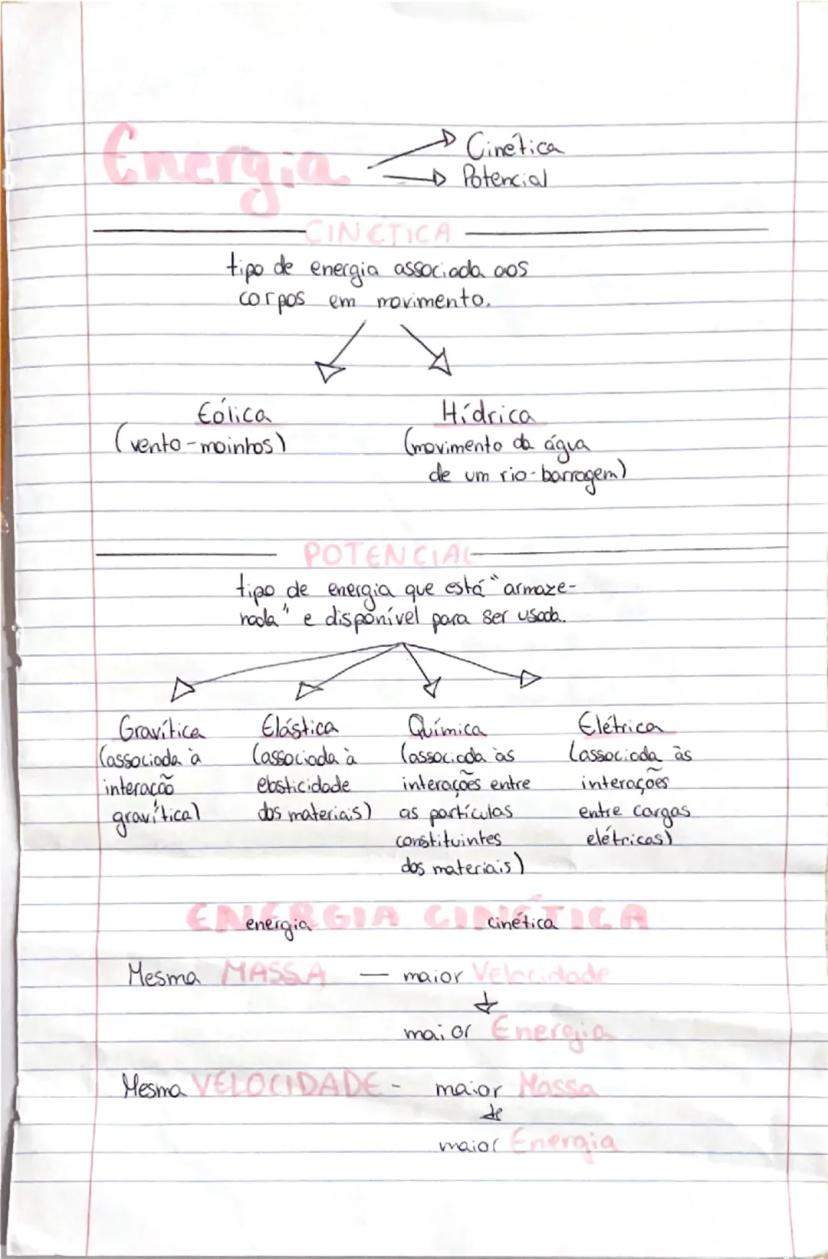 Energia
Cinética
Potencial
CINÉTICA
tipo de energia associada aos
corpos em movimento.
Eólica
(vento-moinhos)
Hídrica
(movimento da água
de um rio-barragem)
POTENCIAL
tipo de energia que está "armaze-
nada" e disponível para ser usada.
Gravítica
(associada à
interação
gravítica)
Elástica
(associada à
elasticidade
dos materiais)
Química
(associada às
interações entre
as partículas
constituintes
dos materiais)
Elétrica
(associada às
interações
entre cargas
elétricas)
ENERGIA CINÉTICA
energia cinética
Mesma MASSA — maior Velocidade
maior Energia
Mesma VELOCIDADE - maior Massa
maior Energia